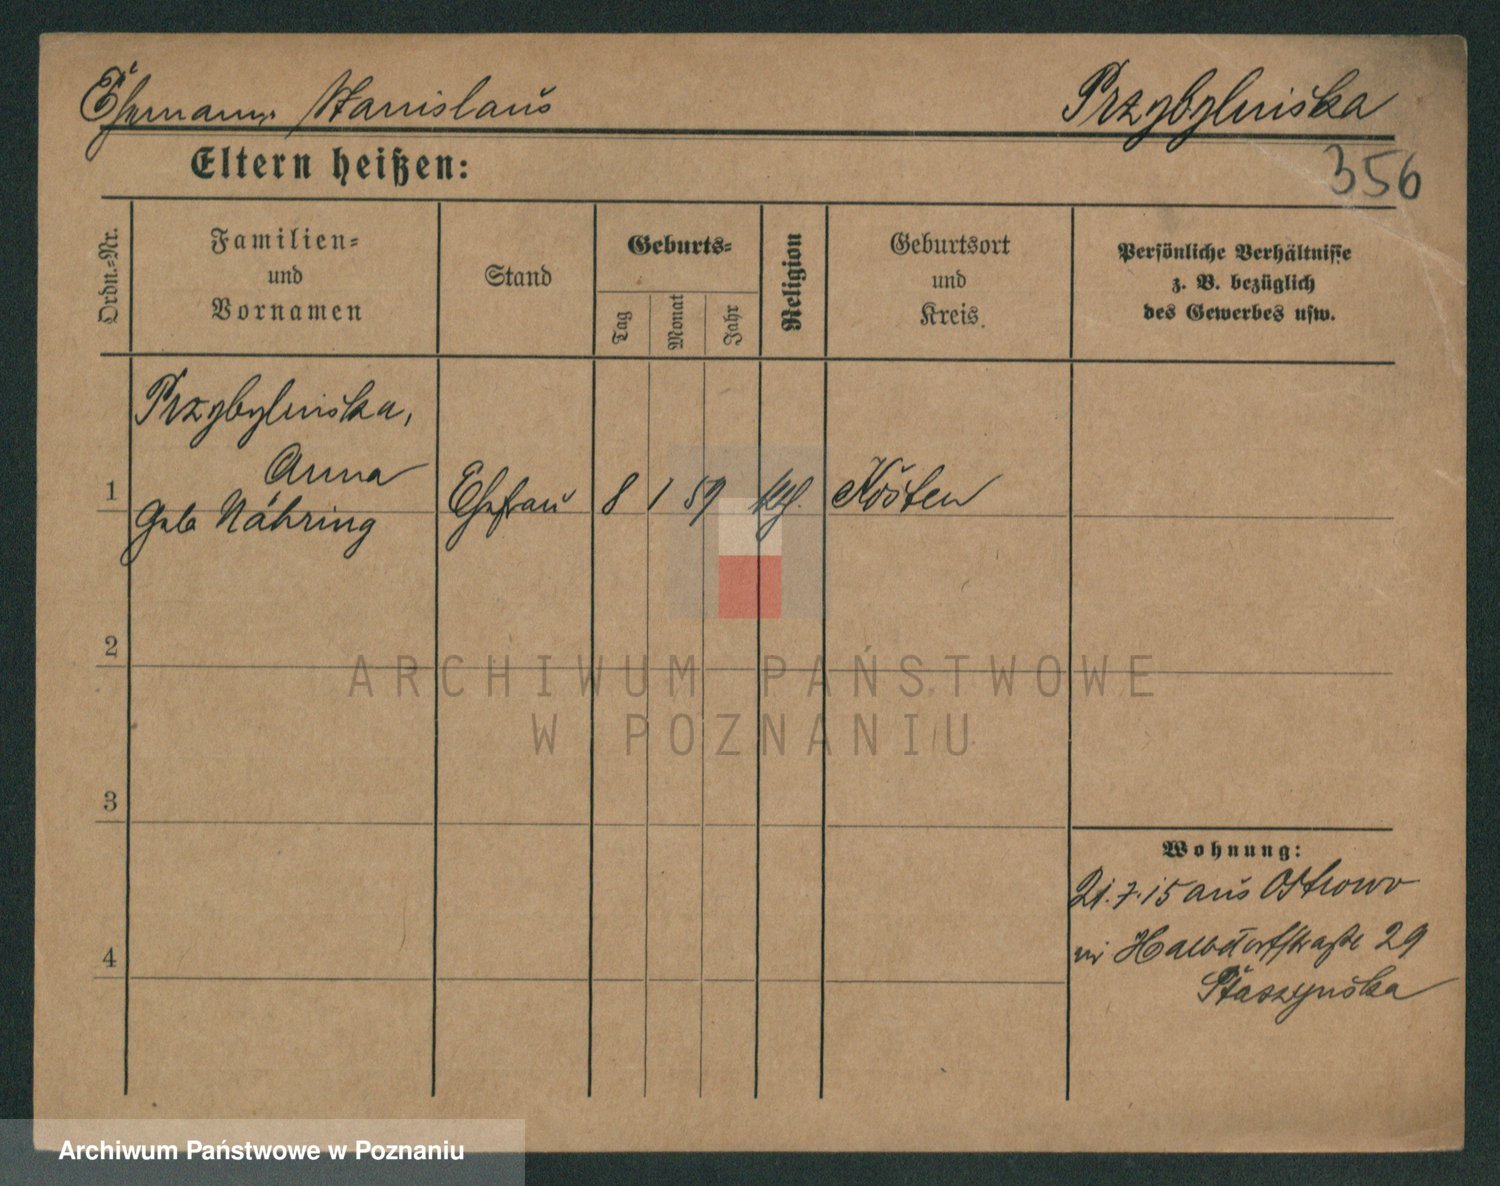 Ehemann Stanislaus Przybylniska
Eltern heißen:
356
Ordn.-Nr.
Familien-
und
Vornamen
Stand
Geburts-
Tag
Monat
Jahr
Religion
Geburtsort
und
Kreis.
Persönliche Verhältnisse
z. B. bezüglich
des Gewerbes usw.
Przybylniska,
Anna
1
geb Nähring
Ehefrau 8 1 59 kth. Kosten
2
3
4
Wohnung:
21.7.15 aus Ostrowo
Halbdorfstraße 29
Staszynska
ARCHIWUM PAŃSTWOWE
W POZNANIU
Archiwum Państwowe w Poznaniu